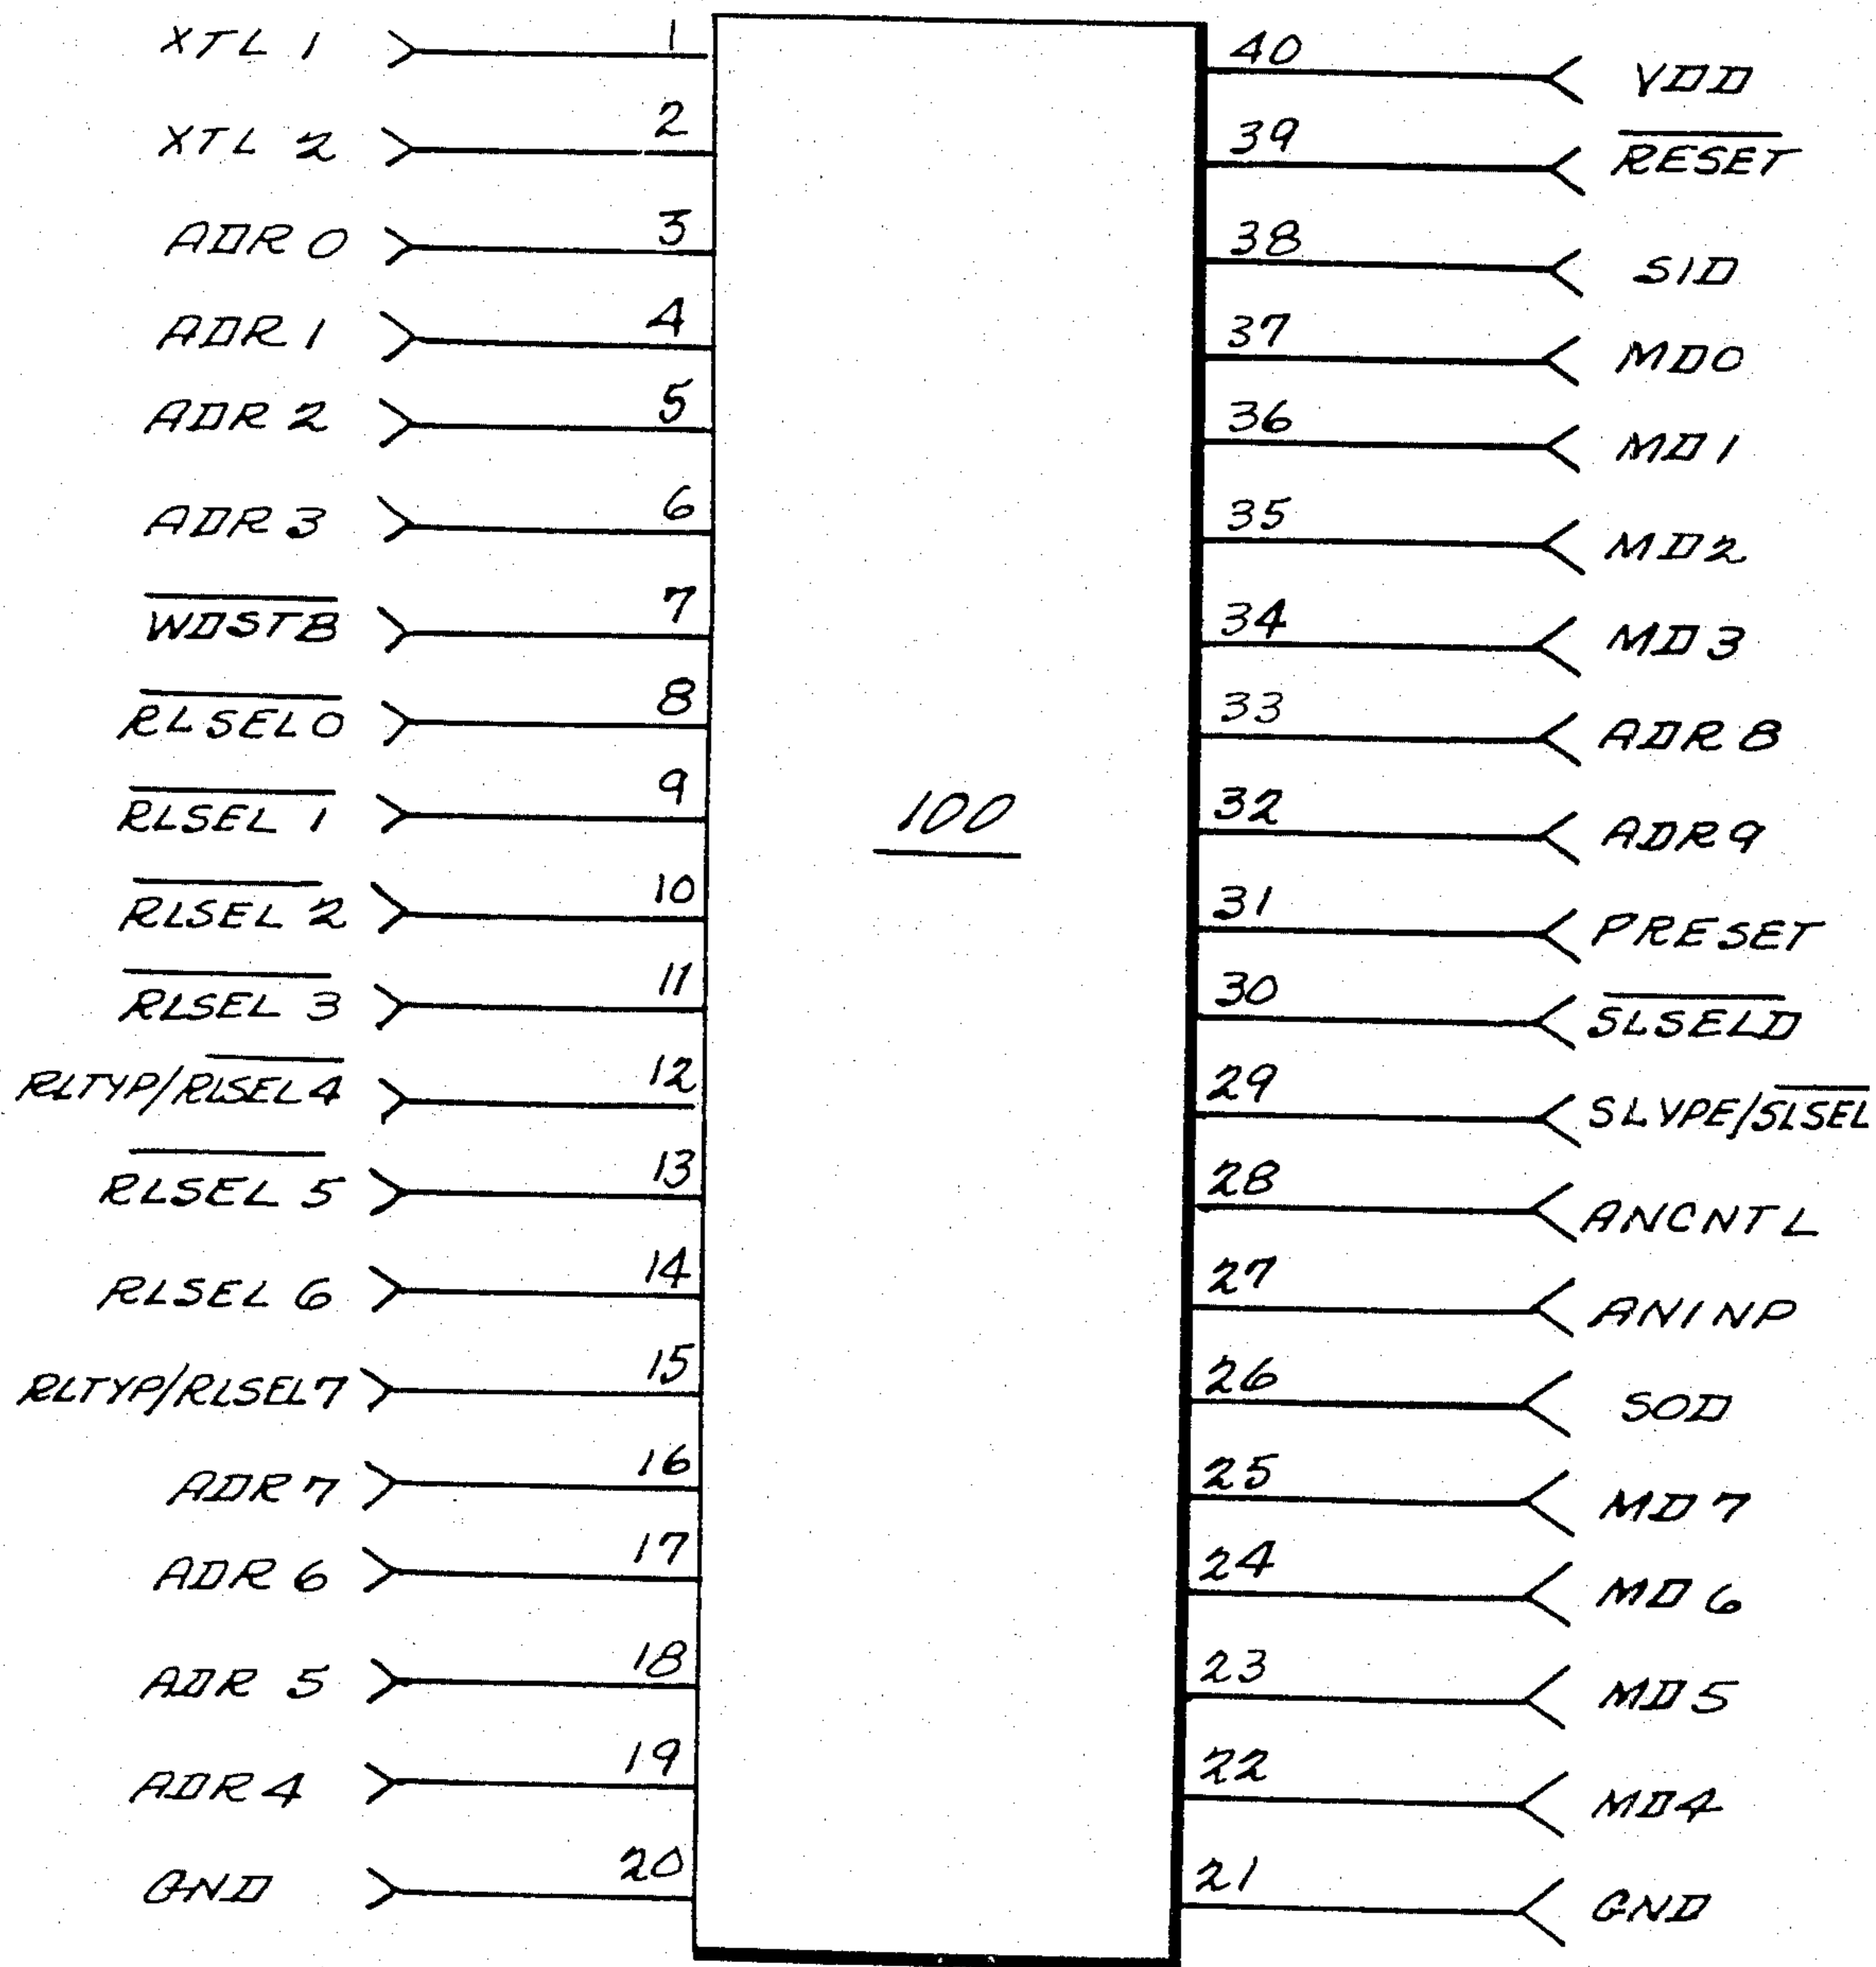 XTL 1 1
XTL 2 2
ADR 0 3
ADR 1 4
ADR 2 5
ADR 3 6
W̅D̅S̅T̅B̅ 7
R̅L̅S̅E̅L̅0̅ 8
R̅L̅S̅E̅L̅ 1̅ 9
R̅L̅S̅E̅L̅ 2̅ 10
R̅L̅S̅E̅L̅ 3̅ 11
RLTYP/R̅L̅S̅E̅L̅4̅ 12
R̅L̅S̅E̅L̅ 5̅ 13
RLSEL 6 14
RLTYP/RLSEL7 15
ADR 7 16
ADR 6 17
ADR 5 18
ADR 4 19
GND 20
100
40 VDD
39 R̅E̅S̅E̅T̅
38 SID
37 MD0
36 MD1
35 MD2
34 MD3
33 ADR 8
32 ADR 9
31 PRESET
30 S̅L̅S̅E̅L̅D̅
29 SLYPE/S̅L̅S̅E̅L̅
28 ANCNTL
27 ANINP
26 SOD
25 MD 7
24 MD 6
23 MD 5
22 MD4
21 GND